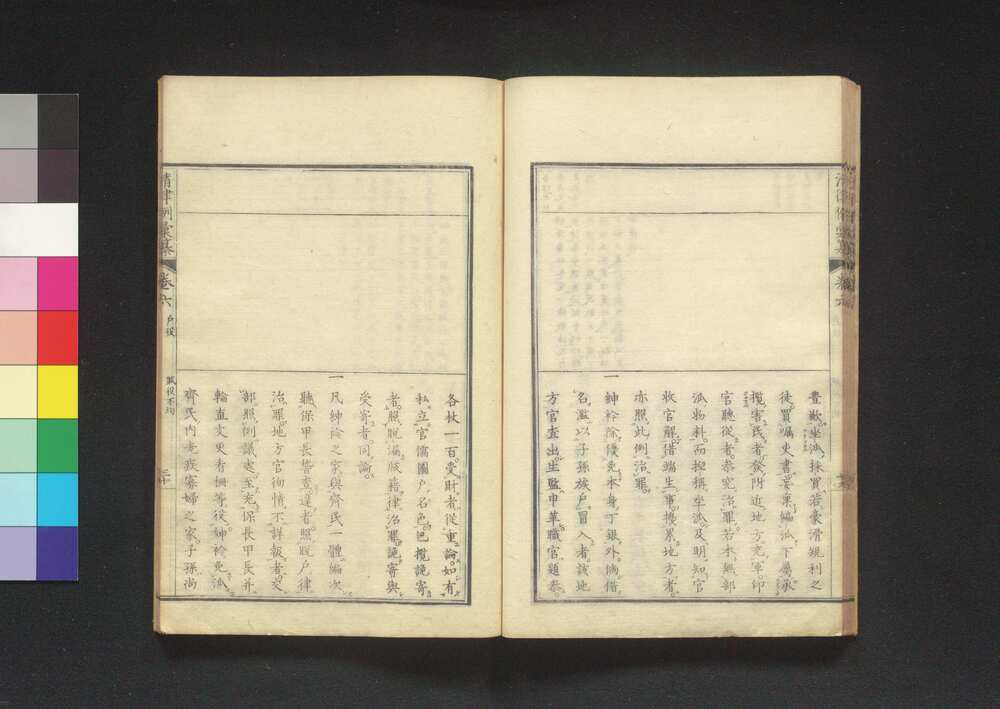 費歇坐派採買若豪滑規利之
徒買囑吏書妄稟編派下屬承
攬害民者發附近地方充軍印
官聽從者參究治罪若本無部
派物料而捏稱坐派及明知官
收官解借端生事擾累地方者
亦照此例治罪
一
紳衿除優免本身丁銀外倘借
名濫以子孫族戶冒入者該地
方官查出生監申革職官題參
各杖一百受財者從重論如有
私立官儒圖戶名色包攬詭寄
者照脫漏版籍律治罪詭寄與
受寄者同論
一
凡紳衿之家與齊民一體編次
聽保甲長稽查違者照脫戶律
治罪地方官徇情不詳報者交
部照例議處至充保長甲長并
輪直支更看柵等役紳衿免派
齊民內老疾寡婦之家子孫尚
清律例彙纂
卷六
戶役
賦役不均